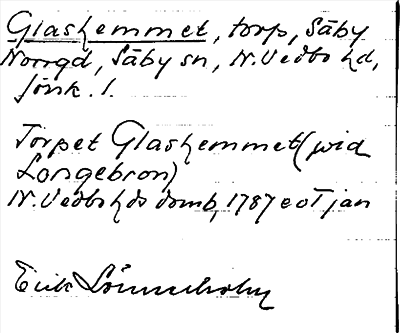 Glashemmet, torp, Säby
Norrgd, Säby sn, N. Vedbo hd,
Jönk. l.
Torpet Glashemmet (wid
Longebron)
N. Vedbo hds domb, 1787 eoT jan
Erik Lönnerholm